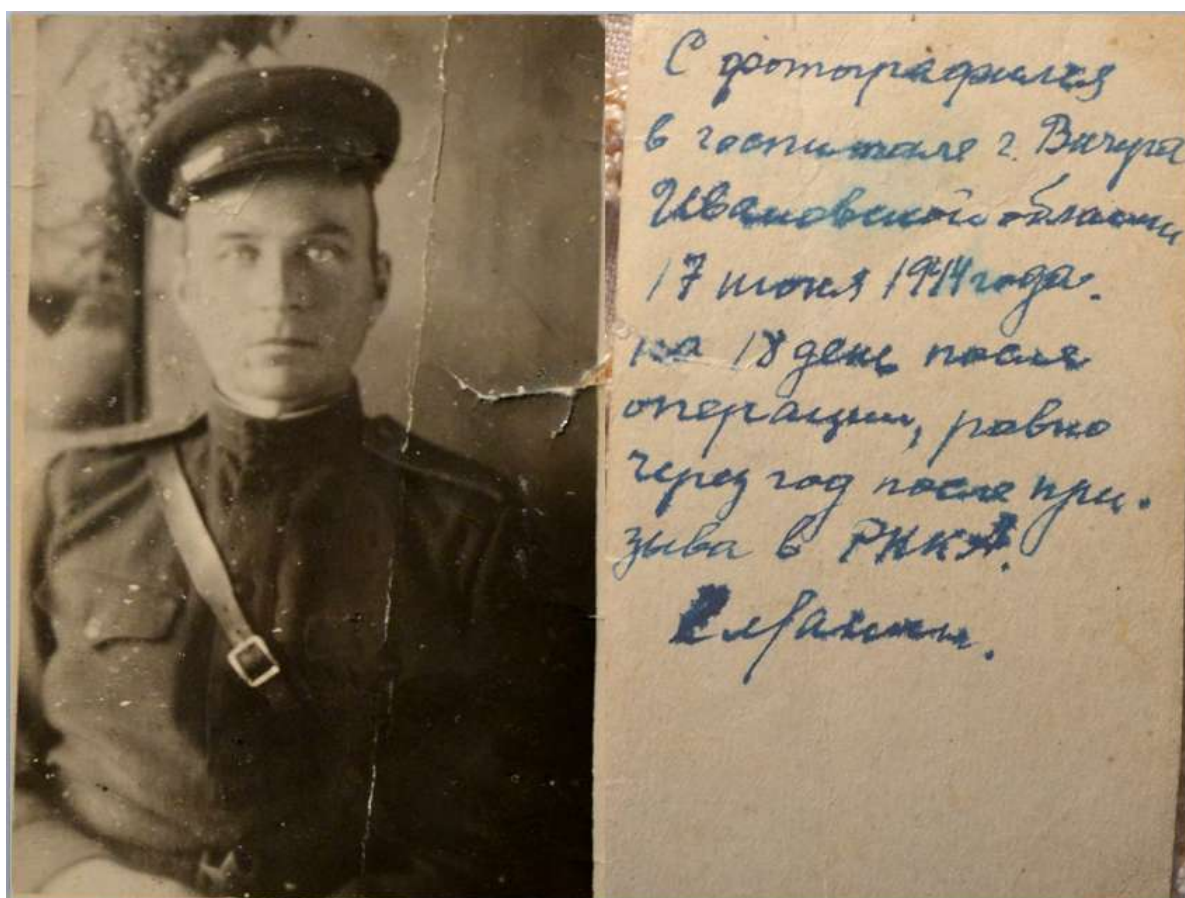 С фотографился
в госпитале г. Вичуга
Ивановской области
17 июня 1944 года.
на 18 день после
операции, ровно
через год после при.
зыва в РККА.